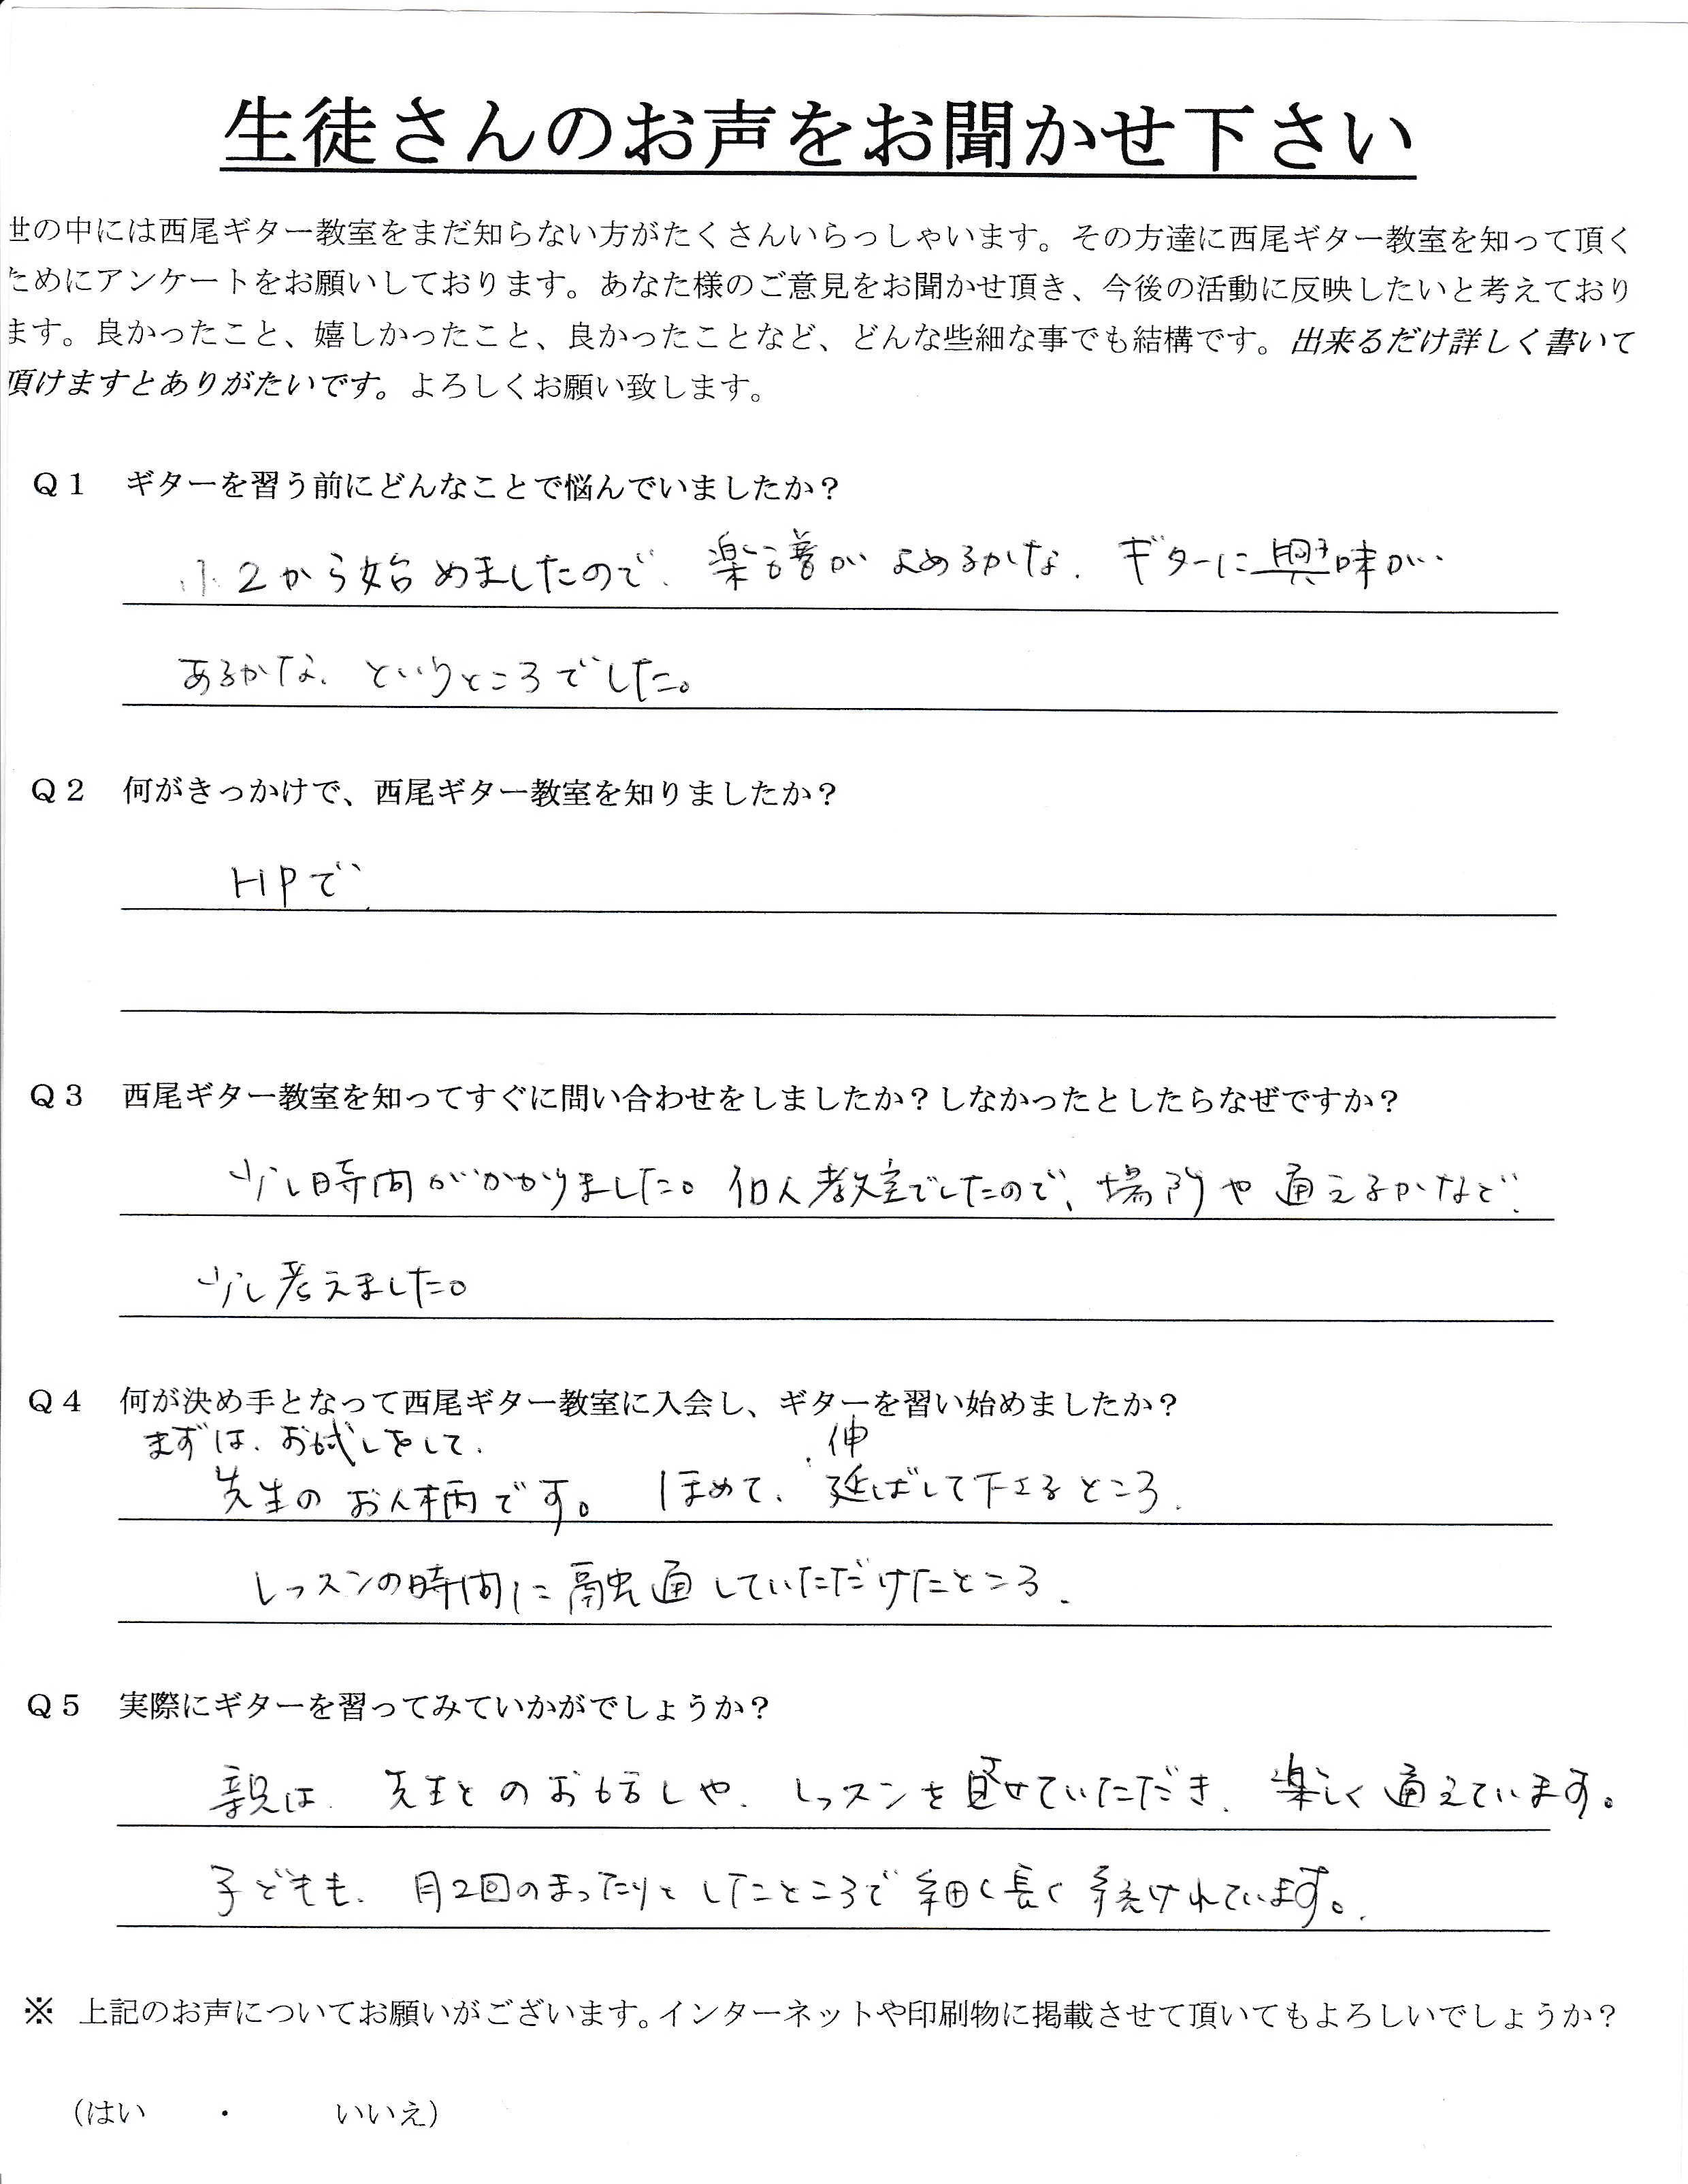 生徒さんのお声をお聞かせ下さい
世の中には西尾ギター教室をまだ知らない方がたくさんいらっしゃいます。その方達に西尾ギター教室を知って頂く
ためにアンケートをお願いしております。あなた様のご意見をお聞かせ頂き、今後の活動に反映したいと考えており
ます。良かったこと、嬉しかったこと、良かったことなど、どんな些細な事でも結構です。出来るだけ詳しく書いて
頂けますとありがたいです。よろしくお願い致します。
Q1 ギターを習う前にどんなことで悩んでいましたか?
小2から始めましたので、楽譜がよめるかな、ギターに興味が
あるかな、というところでした。
Q2 何がきっかけで、西尾ギター教室を知りましたか?
HPで、
Q3 西尾ギター教室を知ってすぐに問い合わせをしましたか?しなかったとしたらなぜですか?
少し時間がかかりました。個人教室でしたので、場所や通えるかなど、
少し考えました。
Q4 何が決め手となって西尾ギター教室に入会し、ギターを習い始めましたか?
まずは、お試しをして、
伸
先生のお人柄です。 ほめて、延ばして下さるところ、
レッスンの時間に融通していただけたところ、
Q5 実際にギターを習ってみていかがでしょうか?
親は、先生とのお話しや、レッスンを見せていただき、楽しく通えています。
子どもも、月2回のまったりとしたところで細く長く続けれています。
※ 上記のお声についてお願いがございます。インターネットや印刷物に掲載させて頂いてもよろしいでしょうか?
(はい ・ いいえ)